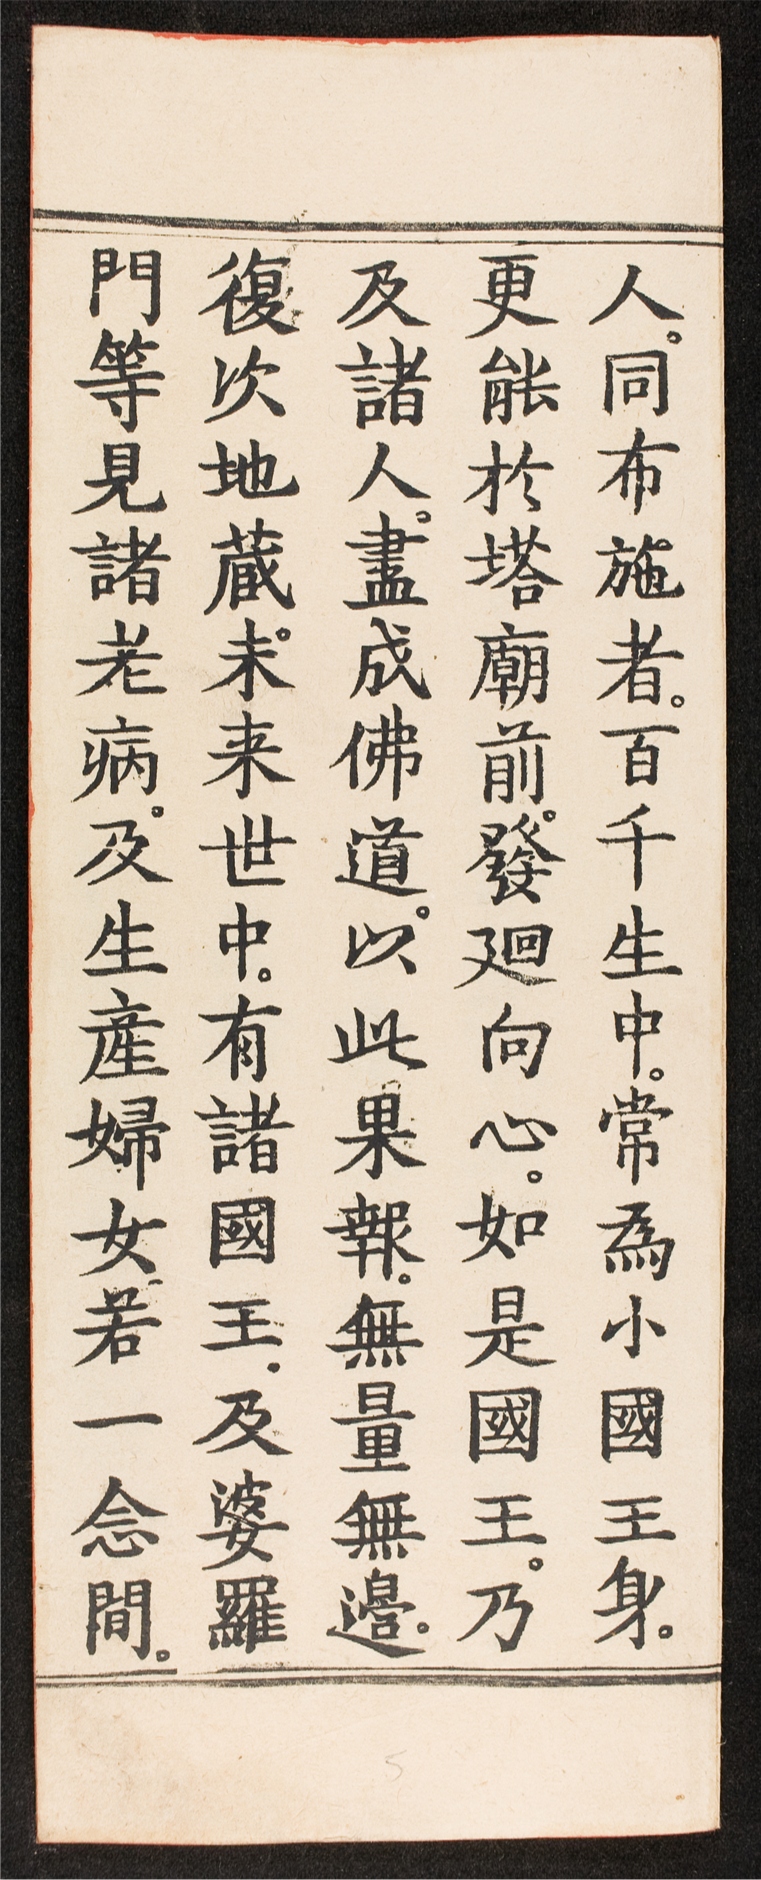 人。同布施者。百千生中。常為小國王身。
更能於塔廟前。發廻向心。如是國王。乃
及諸人。盡成佛道。以此果報。無量無邊。
復次地蔵。未来世中。有諸國王。及婆羅
門等見諸老病。及生產婦女若一念間。
5